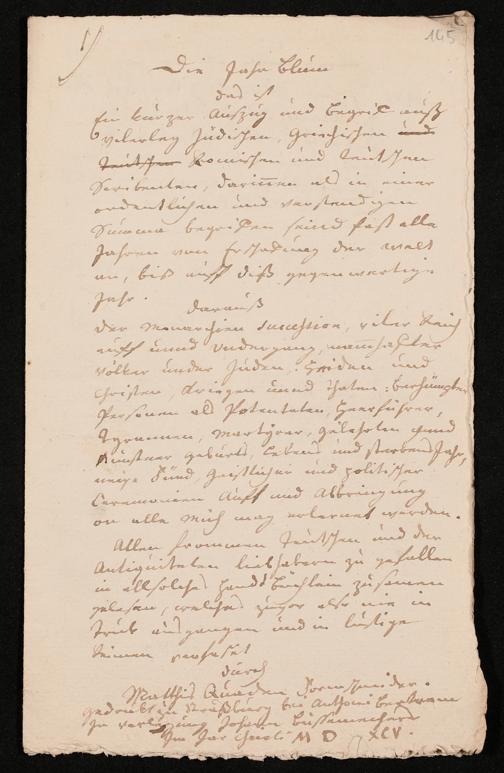 1)
165
Die Jahr Blum
das ist
Ein kurzer Auszug und begrif auß
vilerley Jüdischen, Griechischen und
teutschen Romischen und teutschen
Scribenten, darinnen als in einer
ordentlichen und verstendigen
Summa begriffen seind fast alle
Jahren von Erschafung der welt
an, biß auff diß gegenwertig
Jahr.
darauß
der Monarchien succession, viler Reich
auff unnd Undergang, namhafter
völker under Juden, Heiden und
Christen, Kriegen unnd thaten: berhümpter
Personen als Potentaten, Heerführer,
Tyrannen, Martyrer, gelehrten und
Künstner geburt, lebens und sterbens Jahr,
geistlicher und politischer
Ceremonien Auff und Abbringung
on alle mühe mag erlernet werden.
Allen frommen teutschen und der
Antiquiteten liebhabern zu gefallen
in allsolches handtbüchlein zusamen
gelesen, welches zuvor also nie in
truk ausgangen und in lustige
Reimen verfasset
durch
Matthis Quaden Formschneider.
gedruckt in bey Anthoni Bertram
In verlegung Johann Bussemechers
Im Jar Christi M D XCV.